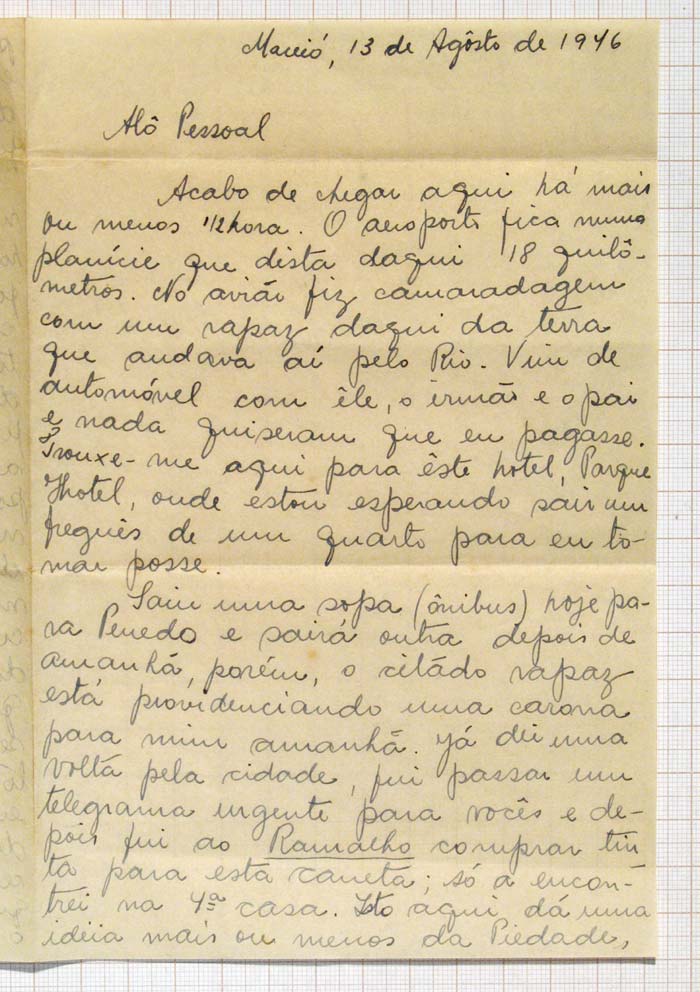 Maceió, 13 de Agôsto de 1946
Alô Pessoal
Acabo de chegar aqui há mais
ou menos 1/2 hora. O aeroporto fica numa
planície que dista daqui 18 quilô-
metros. No avião fiz camaradagem
com um rapaz daqui da terra
que andava aí pelo Rio. Vim de
automóvel com êle, o irmão e o pai
e nada quiseram que eu pagasse.
Trouxe-me aqui para êste hotel, Parque
Hotel, onde estou esperando sair um
freguês de um quarto para eu to-
mar posse.
Saiu uma sopa (ônibus) hoje pa-
ra Penedo e sairá outra depois de
amanhã, porém, o citádo rapaz
está providenciando uma carona
para mim amanhã. Já dei uma
volta pela cidade, fui passar um
telegrama urgente para vocês e de-
pois fui ao Ramalho comprar tin
ta para esta caneta; só a encon-
trei na 4ª casa. Isto aqui dá uma
idéia mais ou menos da Piedade,